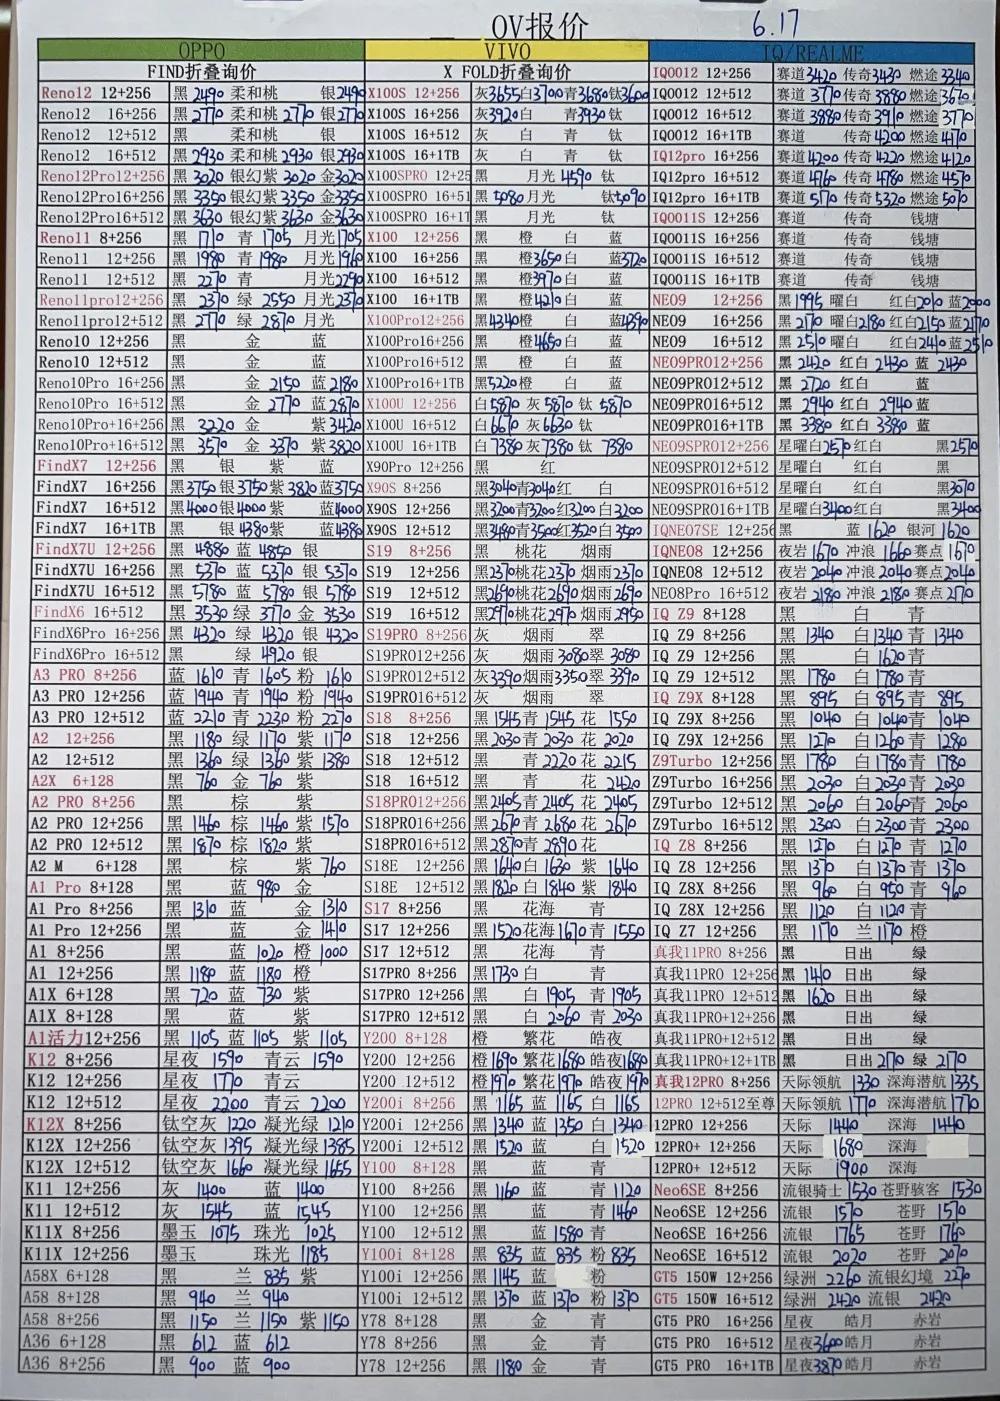 OV报价 6.17
OPPO VIVO IQ/REALME
FIND折叠询价 X FOLD折叠询价 IQOO12 12+256 赛道3420 传奇3430 燃途3340
Reno12 12+256 黑2490 柔和桃 银2490 X100S 12+256 灰3655白3700青3680钛3600 IQOO12 12+512 赛道3770传奇3880 燃途3670
Reno12 16+256 黑2770 柔和桃2770 银2770 X100S 16+256 灰3920白 青3930钛 IQOO12 16+512 赛道3880传奇3910 燃途3770
Reno12 12+512 黑 柔和桃 银 X100S 16+512 灰 白 青 钛 IQOO12 16+1TB 赛道 传奇4200 燃途4170
Reno12 16+512 黑2930 柔和桃2930 银2930 X100S 16+1TB 灰 白 青 钛 IQ12pro 16+256 赛道4200传奇4220 燃途4120
Reno12Pro12+256 黑3020 银幻紫3020 金3020 X100SPRO 12+25 黑 月光4590 钛 IQ12pro 16+512 赛道4760传奇4780 燃途4570
Reno12Pro16+256 黑3350 银幻紫3350 金3350 X100SPRO 16+51 黑5080月光 钛5090 IQ12pro 16+1TB 赛道5170传奇5320 燃途5070
Reno12Pro16+512 黑3630 银幻紫3630 金3630 X100SPRO 16+1T 黑 月光 钛 IQOO11S 12+256 赛道 传奇 钱塘
Reno11 8+256 黑1710 青1705 月光1705 X100 12+256 黑 橙 白 蓝 IQOO11S 16+256 赛道 传奇 钱塘
Reno11 12+256 黑1980 青1980 月光1960 X100 16+256 黑 橙3650白 蓝3720 IQOO11S 16+512 赛道 传奇 钱塘
Reno11 12+512 黑2270 青 月光2290 X100 16+512 黑 橙3970白 蓝 IQOO11S 16+1TB 赛道 传奇 钱塘
Reno11pro12+256 黑2370 绿2550 月光2370 X100 16+1TB 黑 橙4210白 蓝 NEO9 12+256 黑1995曜白 红白2010蓝2000
Reno11pro12+512 黑2770 绿2870 月光 X100Pro12+256 黑4340橙 白 蓝4390 NEO9 16+256 黑2170曜白2180红白2150蓝2170
Reno10 12+256 黑 金 蓝 X100Pro16+256 黑 橙4650白 蓝 NEO9 16+512 黑2510曜白 红白2410蓝2510
Reno10 12+512 黑 金 蓝 X100Pro16+512 黑 橙 白 蓝 NEO9PRO12+256 黑2420红白2430 蓝2430
Reno10Pro 16+256 黑 金2150 蓝2180 X100Pro16+1TB 黑5220橙 白 蓝 NEO9PRO12+512 黑2720红白 蓝
Reno10Pro 16+512 黑 金2770 蓝2870 X100U 12+256 白5870 灰5870 钛5870 NEO9PRO16+512 黑2940红白2940蓝
Reno10Pro+16+256 黑3220 金 紫3420 X100U 16+512 白6670灰6630钛 NEO9PRO16+1TB 黑3380红白3380蓝
Reno10Pro+16+512 黑3570 金3370 紫3820 X100U 16+1TB 白7380灰7380钛7380 NEO9SPRO12+256 星曜白2570红白 黑2570
FindX7 12+256 黑 银 紫 蓝 X90Pro 12+256 黑 红 NEO9SPRO12+512 星曜白 红白 黑
FindX7 16+256 黑3750银3750紫3820蓝3750 X90S 8+256 黑3040青3040红 白 NEO9SPRO16+512 星曜白 红白 黑3070
FindX7 16+512 黑4000银4000紫 蓝4000 X90S 12+256 黑3200青3200红3200白3200 NEO9SPRO16+1TB 星曜白3400红白 黑3400
FindX7 16+1TB 黑 银4380紫 蓝4380 X90S 12+512 黑3480青3500红3520白3500 IQNEO7SE 12+256 黑 蓝1620 银河1620
FindX7U 12+256 黑4880 蓝4850 银 S19 8+256 黑 桃花 烟雨 IQNEO8 12+256 夜岩1670冲浪1660赛点1670
FindX7U 16+256 黑5370 蓝5370 银5370 S19 12+256 黑2370桃花2370烟雨2370 IQNEO8 12+512 夜岩2040冲浪2040赛点2040
FindX7U 16+512 黑5780 蓝5780 银5780 S19 12+512 黑2690桃花2690烟雨2690 NEO8Pro 16+512 夜岩2180冲浪2180赛点2170
FindX6 16+512 黑3530绿3770 金3530 S19 16+512 黑2970桃花2970烟雨2950 IQ Z9 8+128 黑 白 青
FindX6Pro 16+256 黑4320 绿4320 银4320 S19PRO 8+256 灰 烟雨 翠 IQ Z9 8+256 黑1340 白1340青1340
FindX6Pro 16+512 黑 绿4920 银 S19PRO12+256 灰 烟雨3080翠3080 IQ Z9 12+256 黑 白1620青
A3 PRO 8+256 蓝1610 青1605 粉1610 S19PRO12+512 灰3390烟雨3350翠3390 IQ Z9 12+512 黑1780 白1780青
A3 PRO 12+256 蓝1940 青1940 粉1940 S19PRO16+512 灰 烟雨 翠 IQ Z9X 8+128 黑895 白895青895
A3 PRO 12+512 蓝2210 青2230 粉2270 S18 8+256 黑1545青1545 花1550 IQ Z9X 8+256 黑1040 白1040青1040
A2 12+256 黑1180 绿1170 紫1170 S18 12+256 黑2030青2030 花2020 IQ Z9X 12+256 黑1270 白1260青1280
A2 12+512 黑1360 绿1360 紫1380 S18 12+512 黑 青2220 花2215 Z9Turbo 12+256 黑1780 白1780青1780
A2X 6+128 黑760 金760 紫 S18 16+512 黑 青 花2420 Z9Turbo 16+256 黑2030 白2030青2030
A2 PRO 8+256 黑 棕 紫 S18PRO12+256 黑2405青2405花2405 Z9Turbo 12+512 黑2060 白2060青2060
A2 PRO 12+256 黑1460 棕1460 紫1570 S18PRO16+256 黑2670青2680花2670 Z9Turbo 16+512 黑2300 白2300青2300
A2 PRO 12+512 黑1870 棕1820 紫 S18PRO16+512 黑2870青2890花 IQ Z8 8+256 黑1270 白1270青1270
A2 M 6+128 黑 棕 紫760 S18E 12+256 黑1640白1630 紫1640 IQ Z8 12+256 黑1370 白1370青1370
A1 Pro 8+128 黑 蓝980 金 S18E 12+512 黑1820白1840 紫1840 IQ Z8X 8+256 黑960 白950青960
A1 Pro 8+256 黑1310 蓝 金1310 S17 8+256 黑 花海 青 IQ Z8X 12+256 黑1120 白1120青
A1 Pro 12+256 黑 蓝 金1410 S17 12+256 黑1520花海1670青1550 IQ Z7 12+256 黑1170 兰1170橙
A1 8+256 黑 蓝1020 橙1000 S17 12+512 黑 花海 青 真我11PRO 8+256 黑 日出 绿
A1 12+256 黑1180 蓝1180 橙 S17PRO 8+256 黑1730白 青 真我11PRO 12+256 黑1410 日出 绿
A1X 6+128 黑720 蓝730 紫 S17PRO 12+256 黑 白1905 青1905 真我11PRO 12+512 黑1620 日出 绿
A1X 8+128 黑 蓝 紫 S17PRO 12+512 黑 白2060 青2030 真我11PRO+12+256 黑 日出 绿
A1活力12+256 黑1105 蓝1105 紫1105 Y200 8+128 橙 繁花 皓夜 真我11PRO+12+512 黑 日出 绿
K12 8+256 星夜1590 青云1590 Y200 12+256 橙1690繁花1680皓夜1680 真我11PRO+12+1TB 黑 日出2170绿2170
K12 12+256 星夜1770 青云 Y200 12+512 橙1970繁花1970皓夜1970 真我12PRO 8+256 天际领航1330 深海潜航1335
K12 12+512 星夜2200 青云2200 Y200i 8+256 黑1165 蓝1165 白1165 12PRO 12+512至尊 天际领航1770 深海潜航1770
K12X 8+256 钛空灰1220 凝光绿1210 Y200i 12+256 黑1340 蓝1350 白1340 12PRO 12+256 天际1440 深海1440
K12X 12+256 钛空灰1395 凝光绿1385 Y200i 12+512 黑1520 蓝 白1520 12PRO+ 12+256 天际1680 深海
K12X 12+512 钛空灰1660 凝光绿1655 Y100 8+128 黑 蓝 青 12PRO+ 12+512 天际1900 深海
K11 12+256 灰1400 蓝1400 Y100 8+256 黑1160 蓝 青1120 Neo6SE 8+256 流银骑士1530苍野骇客1530
K11 12+512 灰1545 蓝1545 Y100 12+256 黑 蓝 青1460 Neo6SE 12+256 流银1570 苍野1570
K11X 8+256 墨玉1075 珠光1025 Y100 12+512 黑 蓝1580青 Neo6SE 16+256 流银1765 苍野1760
K11X 12+256 墨玉 珠光1185 Y100i 8+128 黑835 蓝835粉835 Neo6SE 16+512 流银2020 苍野2070
A58X 6+128 黑 兰835 紫 Y100i 12+256 黑1145 蓝 粉 GT5 150W 12+256 绿洲2260流银幻境2270
A58 8+128 黑940 兰940 Y100i 12+512 黑1370 蓝1370粉1370 GT5 150W 16+512 绿洲2420流银2420
A58 8+256 黑1150 兰1150 紫1150 Y78 8+128 黑 金 青 GT5 PRO 16+256 星夜 皓月 赤岩
A36 6+128 黑612 蓝612 Y78 8+256 黑 金 青 GT5 PRO 16+512 星夜3600皓月 赤岩
A36 8+256 黑900 蓝900 Y78 12+256 黑1180金 青 GT5 PRO 16+1TB 星夜3870皓月 赤岩